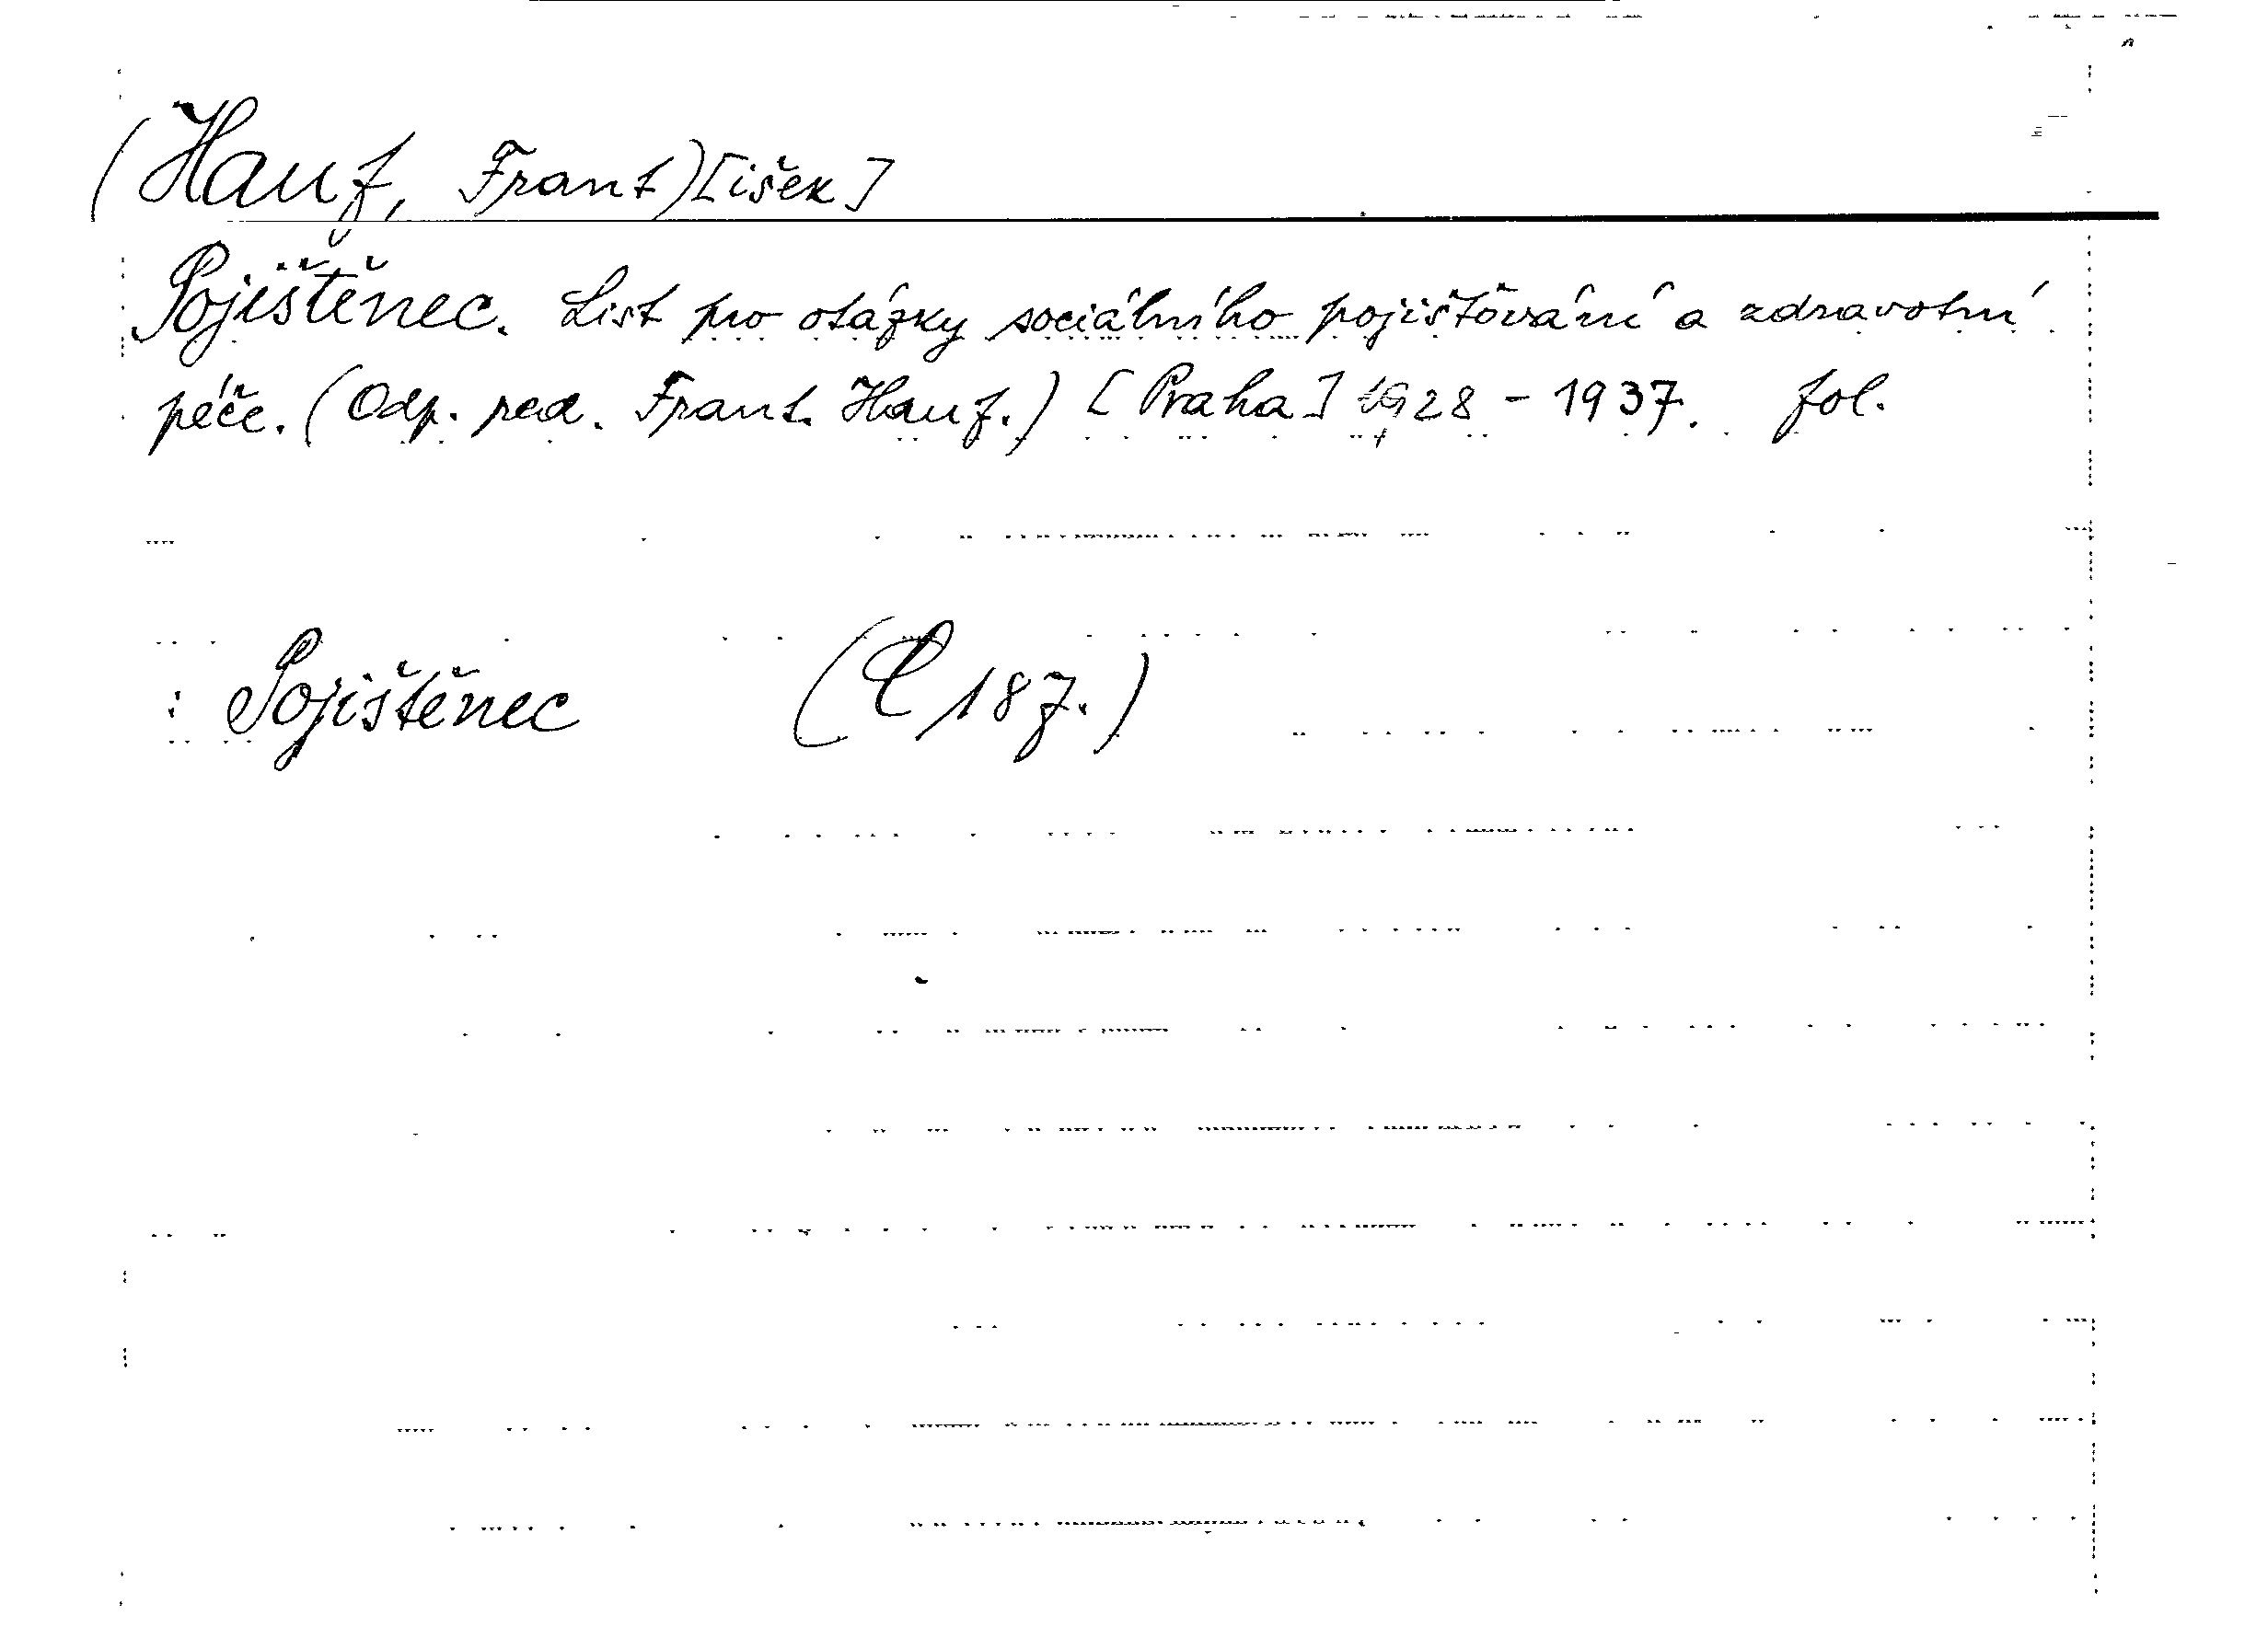 (Hauf, Frant)[išek]
Pojištěnec. List pro otázky sociálního pojišťování a zdravotní
péče. (Odp. red. Frant. Hauf.) [Praha] 1928 - 1937. fol.
: Pojištěnec (C 187.)